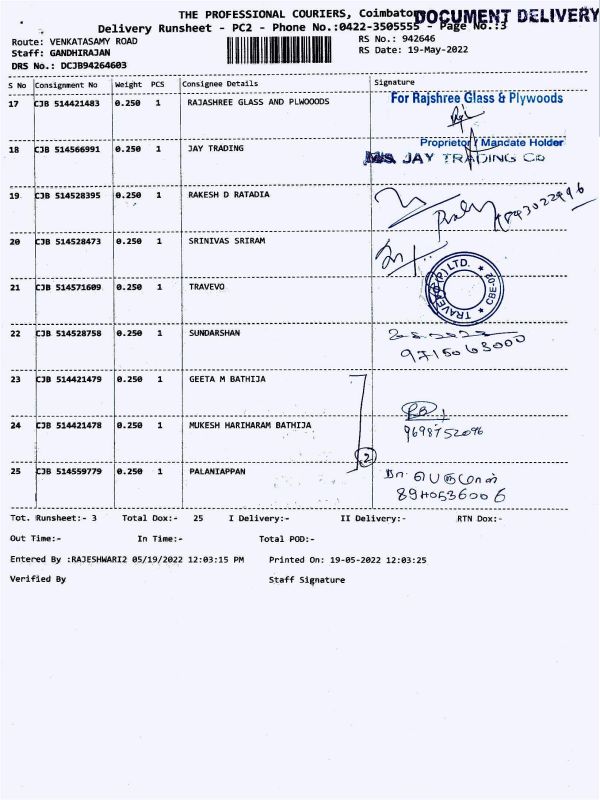 THE PROFESSIONAL COURIERS, Coimbator
DOCUMENT DELIVERY
Delivery Runsheet - PC2 - Phone No.:0422-3505555 - Page No.:3
Route: VENKATASAMY ROAD
RS No.: 942646
Staff: GANDHIRAJAN
RS Date: 19-May-2022
DRS No.: DCJB94264603
S No Consignment No Weight PCS Consignee Details Signature
17 CJB 514421483 0.250 1 RAJASHREE GLASS AND PLWOOODS
For Rajshree Glass & Plywoods
Proprietor / Mandate Holder
18 CJB 514566991 0.250 1 JAY TRADING
M/s. JAY TRADING Co
19 CJB 514528395 0.250 1 RAKESH D RATADIA
9893022996
20 CJB 514528473 0.250 1 SRINIVAS SRIRAM
21 CJB 514571609 0.250 1 TRAVEVO
TRAVEVO (P) LTD. ★ CBE-02 ★
22 CJB 514528758 0.250 1 SUNDARSHAN
9715063000
23 CJB 514421479 0.250 1 GEETA M BATHIJA
24 CJB 514421478 0.250 1 MUKESH HARIHARAM BATHIJA
9698752096
2
25 CJB 514559779 0.250 1 PALANIAPPAN
பெருமாள்
8940536006
Tot. Runsheet:- 3 Total Dox:- 25 I Delivery:- II Delivery:- RTN Dox:-
Out Time:- In Time:- Total POD:-
Entered By :RAJESHWARI2 05/19/2022 12:03:15 PM Printed On: 19-05-2022 12:03:25
Verified By Staff Signature